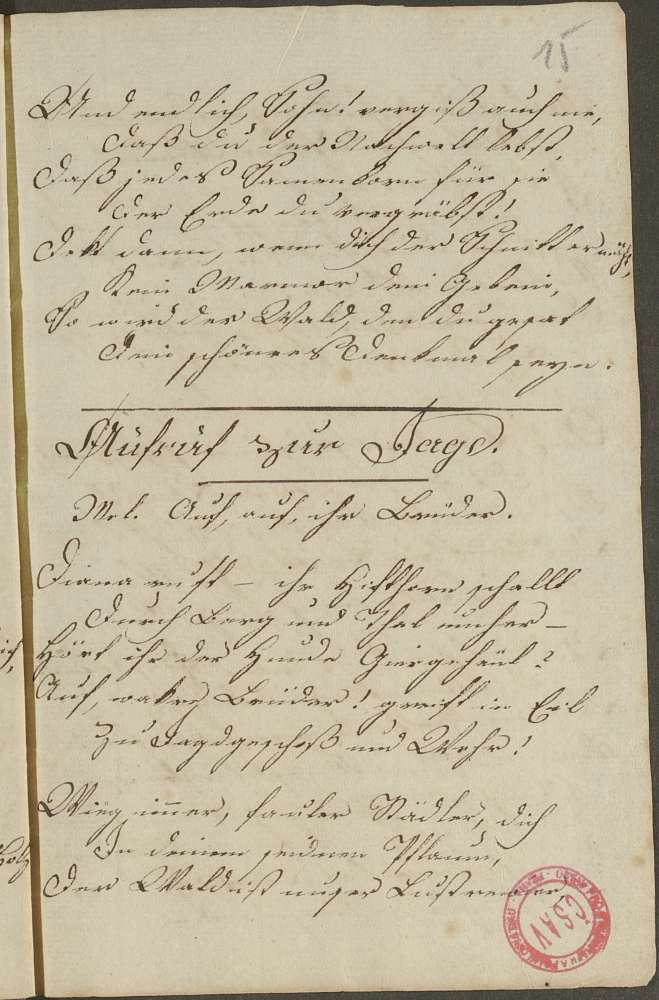 15
Und endlich, Sohn! vergiß auch nie,
daß du der Nachwelt lebst,
daß jedes Samenkorn für sie
der Erde du vergräbst!
Dekt dann, wenn dich der Schnitter mäht,
Kein Marmor dein Gebein,
So wird der Wald, den du gesät
dein schönres Denkmal seyn.
Aufruf zur Jagd.
Mel. Auf, auf, ihr Brüder.
Diana ruft – ihr Hifthorn schallt
durch Berg und Thal umher –
Hört ihr der Hunde Giergeheul?
Auf, wakre Brüder! greift in Eil
zu Jagdgeschoß und Wehr!
Wieg immer, fauler Städter, dich
In deinem seidnen Pflaum,
der Wald ist unser Lustrevier,
ČSAV